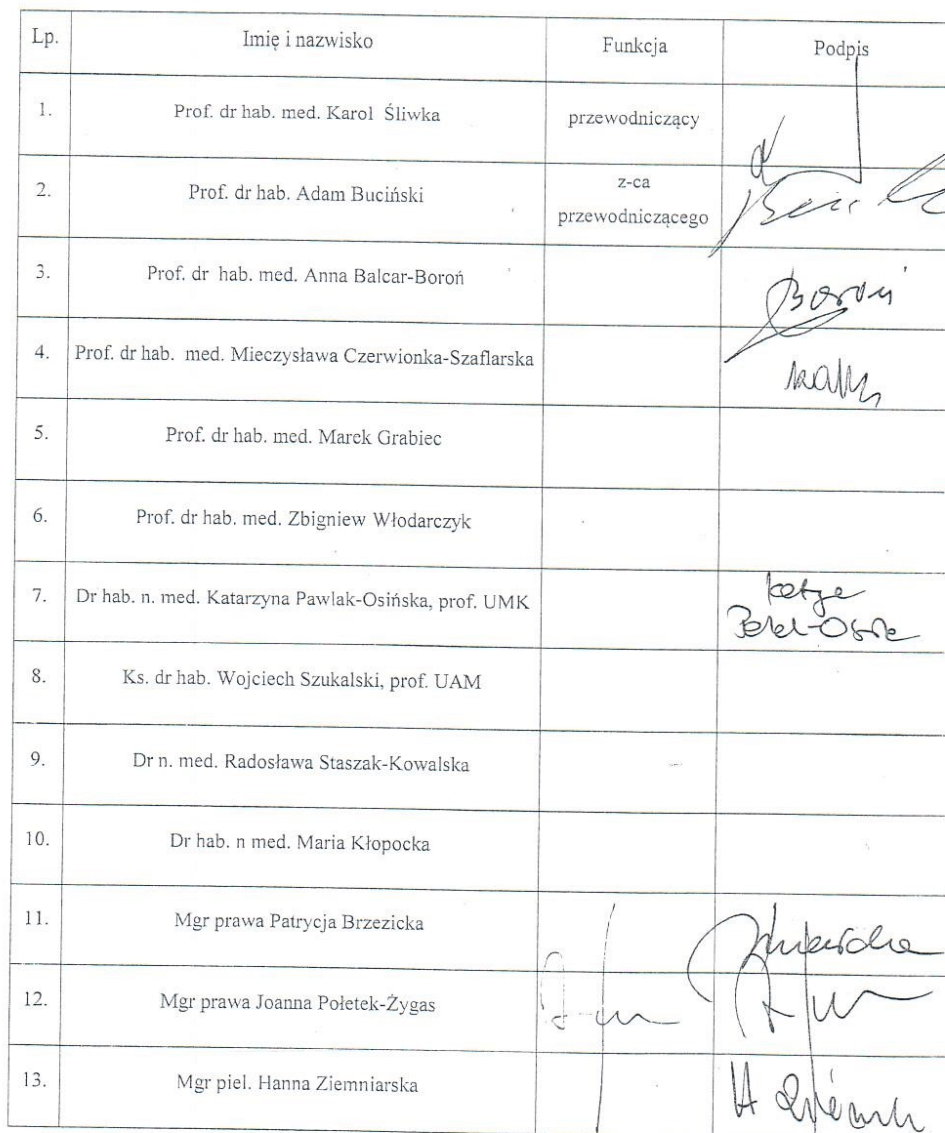 Lp. Imię i nazwisko Funkcja Podpis
1. Prof. dr hab. med. Karol Śliwka przewodniczący
2. Prof. dr hab. Adam Buciński z-ca
przewodniczącego
3. Prof. dr hab. med. Anna Balcar-Boroń Boroń
4. Prof. dr hab. med. Mieczysława Czerwionka-Szaflarska
5. Prof. dr hab. med. Marek Grabiec
6. Prof. dr hab. med. Zbigniew Włodarczyk
7. Dr hab. n. med. Katarzyna Pawlak-Osińska, prof. UMK
8. Ks. dr hab. Wojciech Szukalski, prof. UAM
9. Dr n. med. Radosława Staszak-Kowalska
10. Dr hab. n med. Maria Kłopocka
11. Mgr prawa Patrycja Brzezicka
12. Mgr prawa Joanna Połetek-Żygas
13. Mgr piel. Hanna Ziemniarska